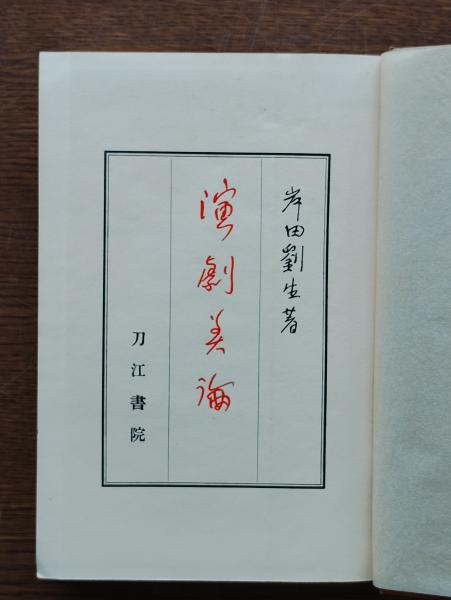 岸田劉生著
演劇美論
刀江書院